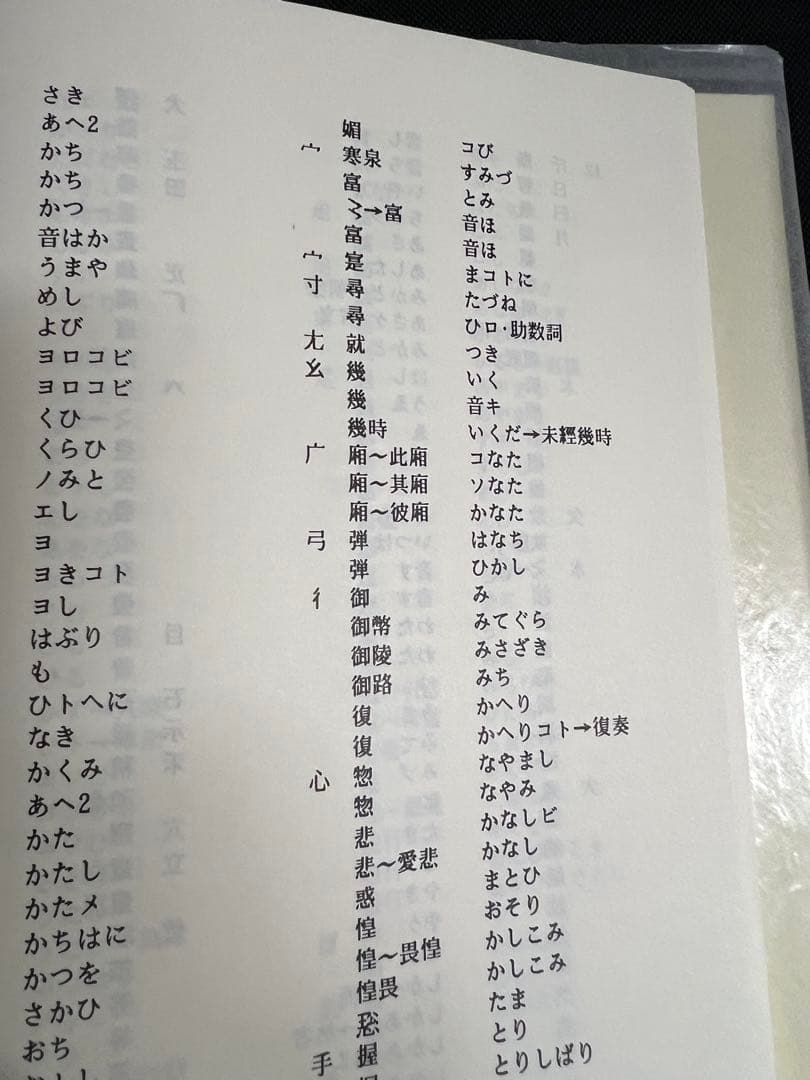 さき
あへ2
かち
かち
かつ
音はか
うまや
めし
よび
ヨロコビ
ヨロコビ
くひ
くらひ
ノみと
エし
ヨ
ヨきコト
ヨし
はぶり
も
ひトへに
なき
かくみ
あへ2
かた
かたし
かたメ
かちはに
かつを
さかひ
おち
媚 コび
宀 寒泉 すみづ
富 とみ
〻→富 音ほ
富 音ほ
宀 寔 まコトに
寸 尋 たづね
尋 ひロ・助数詞
尢 就 つき
幺 幾 いく
幾 音キ
幾時 いくだ→未經幾時
广 廂〜此廂 コなた
廂〜其廂 ソなた
廂〜彼廂 かなた
弓 弾 はなち
弾 ひかし
彳 御 み
御幣 みてぐら
御陵 みさざき
御路 みち
復 かへり
復 かへりコト→復奏
心 惣 なやまし
惣 なやみ
悲 かなしビ
悲〜愛悲 かなし
惑 まとひ
惶 おそり
惶〜畏惶 かしこみ
惶畏 かしこみ
たま
手 握 とり
とりしばり